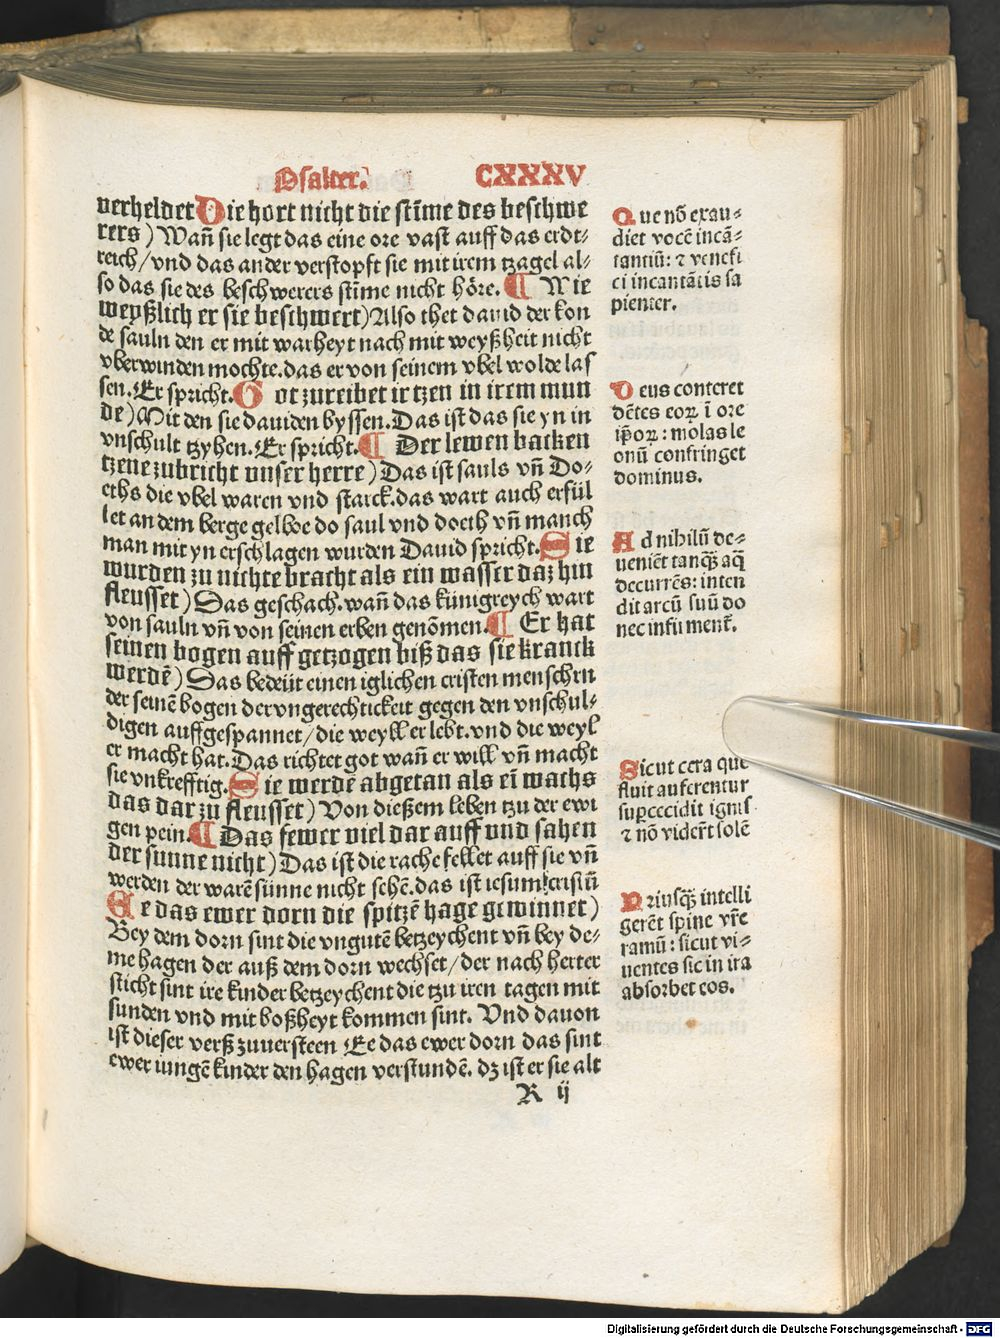 Psalter. CXXXV
verheldet Die hort nicht die stīme des beschwe
rers) Wañ sie legt das eine ore vast auff das erdt⸗
reich/vnd das ander verstopft sie mit irem tzagel al⸗
so das sie des beschwerers stīme nicht höre. ¶ Wie
weyßlich er sie beschwert) Also thet dauid der kon
de sauln den er mit warheyt nach mit weyßheit nicht
vberwinden mochte. das er von seinem vbel wolde las
sen. Er spricht. Got zureibet ir tzen in irem mun
de) Mit den sie dauiden byssen. Das ist das sie yn in
vnschult tzyhen. Er spricht. ¶ Der lewen backen
tzene zubricht vnser herre) Das ist sauls vñ Do⸗
eths die vbel waren vnd starck. das wart auch erfül
let an dem berge gelboe do saul vnd doeth vñ manch
man mit yn erschlagen wurden Dauid spricht. Sie
wurden zu nichte bracht als ein wasser daz hin
fleusset) Das geschach. wañ das künigreych wart
von sauln vñ von seinen erben genōmen. ¶ Er hat
seinen bogen auff getzogen biß das sie kranck
werdē) Das bedeüt einen iglichen cristen menschen
der seinē bogen der vngerechtickeit gegen den vnschul⸗
digen auffgespannet/die weyll er lebt. vnd die weyl
er macht hat. Das richtet got wañ er will vñ macht
sie vnkrefftig. Sie werdē abgetan als eī wachs
das dar zu fleusset) Von dießem leben tzu der ewi
gen pein. ¶ Das fewer viel dar auff vnd sahen
der sunne nicht) Das ist die rache fellet auff sie vñ
werden der warē sünne nicht sehē. das ist iesum cristū
Ee das ewer dorn die spitzē hage gewinnet)
Bey dem dorn sint die vngutē betzeychent vñ bey de⸗
me hagen der auß dem dorn wechset/der nach herter
sticht sint ire kinder betzeychent die tzu iren tagen mit
sunden vnd mit boßheyt kommen sint. Vnd dauon
ist dieser verß zuuersteen Ee das ewer dorn das sint
ewer iungē kinder den hagen verstundē. dz ist er sie alt
R ij
Que nō exau⸗
diet vocē incā⸗
tantiū: ⁊ venefi
ci incantātis sa
pienter.
Deus conteret
dētes eoꝝ ī ore
ip̄oꝝ: molas le
onū confringet
dominus.
Ad nihilū de⸗
ueniēt tanqȝ aq̄
decurrēs: inten
dit arcū suū do
nec infirmentˀ.
Sicut cera que
fluit auferentur
suꝑcecidit ignis
⁊ nō vider̄t solē
Priusqȝ intelli
gerēt spine vr̄e
ramū: sicut vi⸗
uentes sic in ira
absorbet eos.
Digitalisierung gefördert durch die Deutsche Forschungsgemeinschaft - DFG